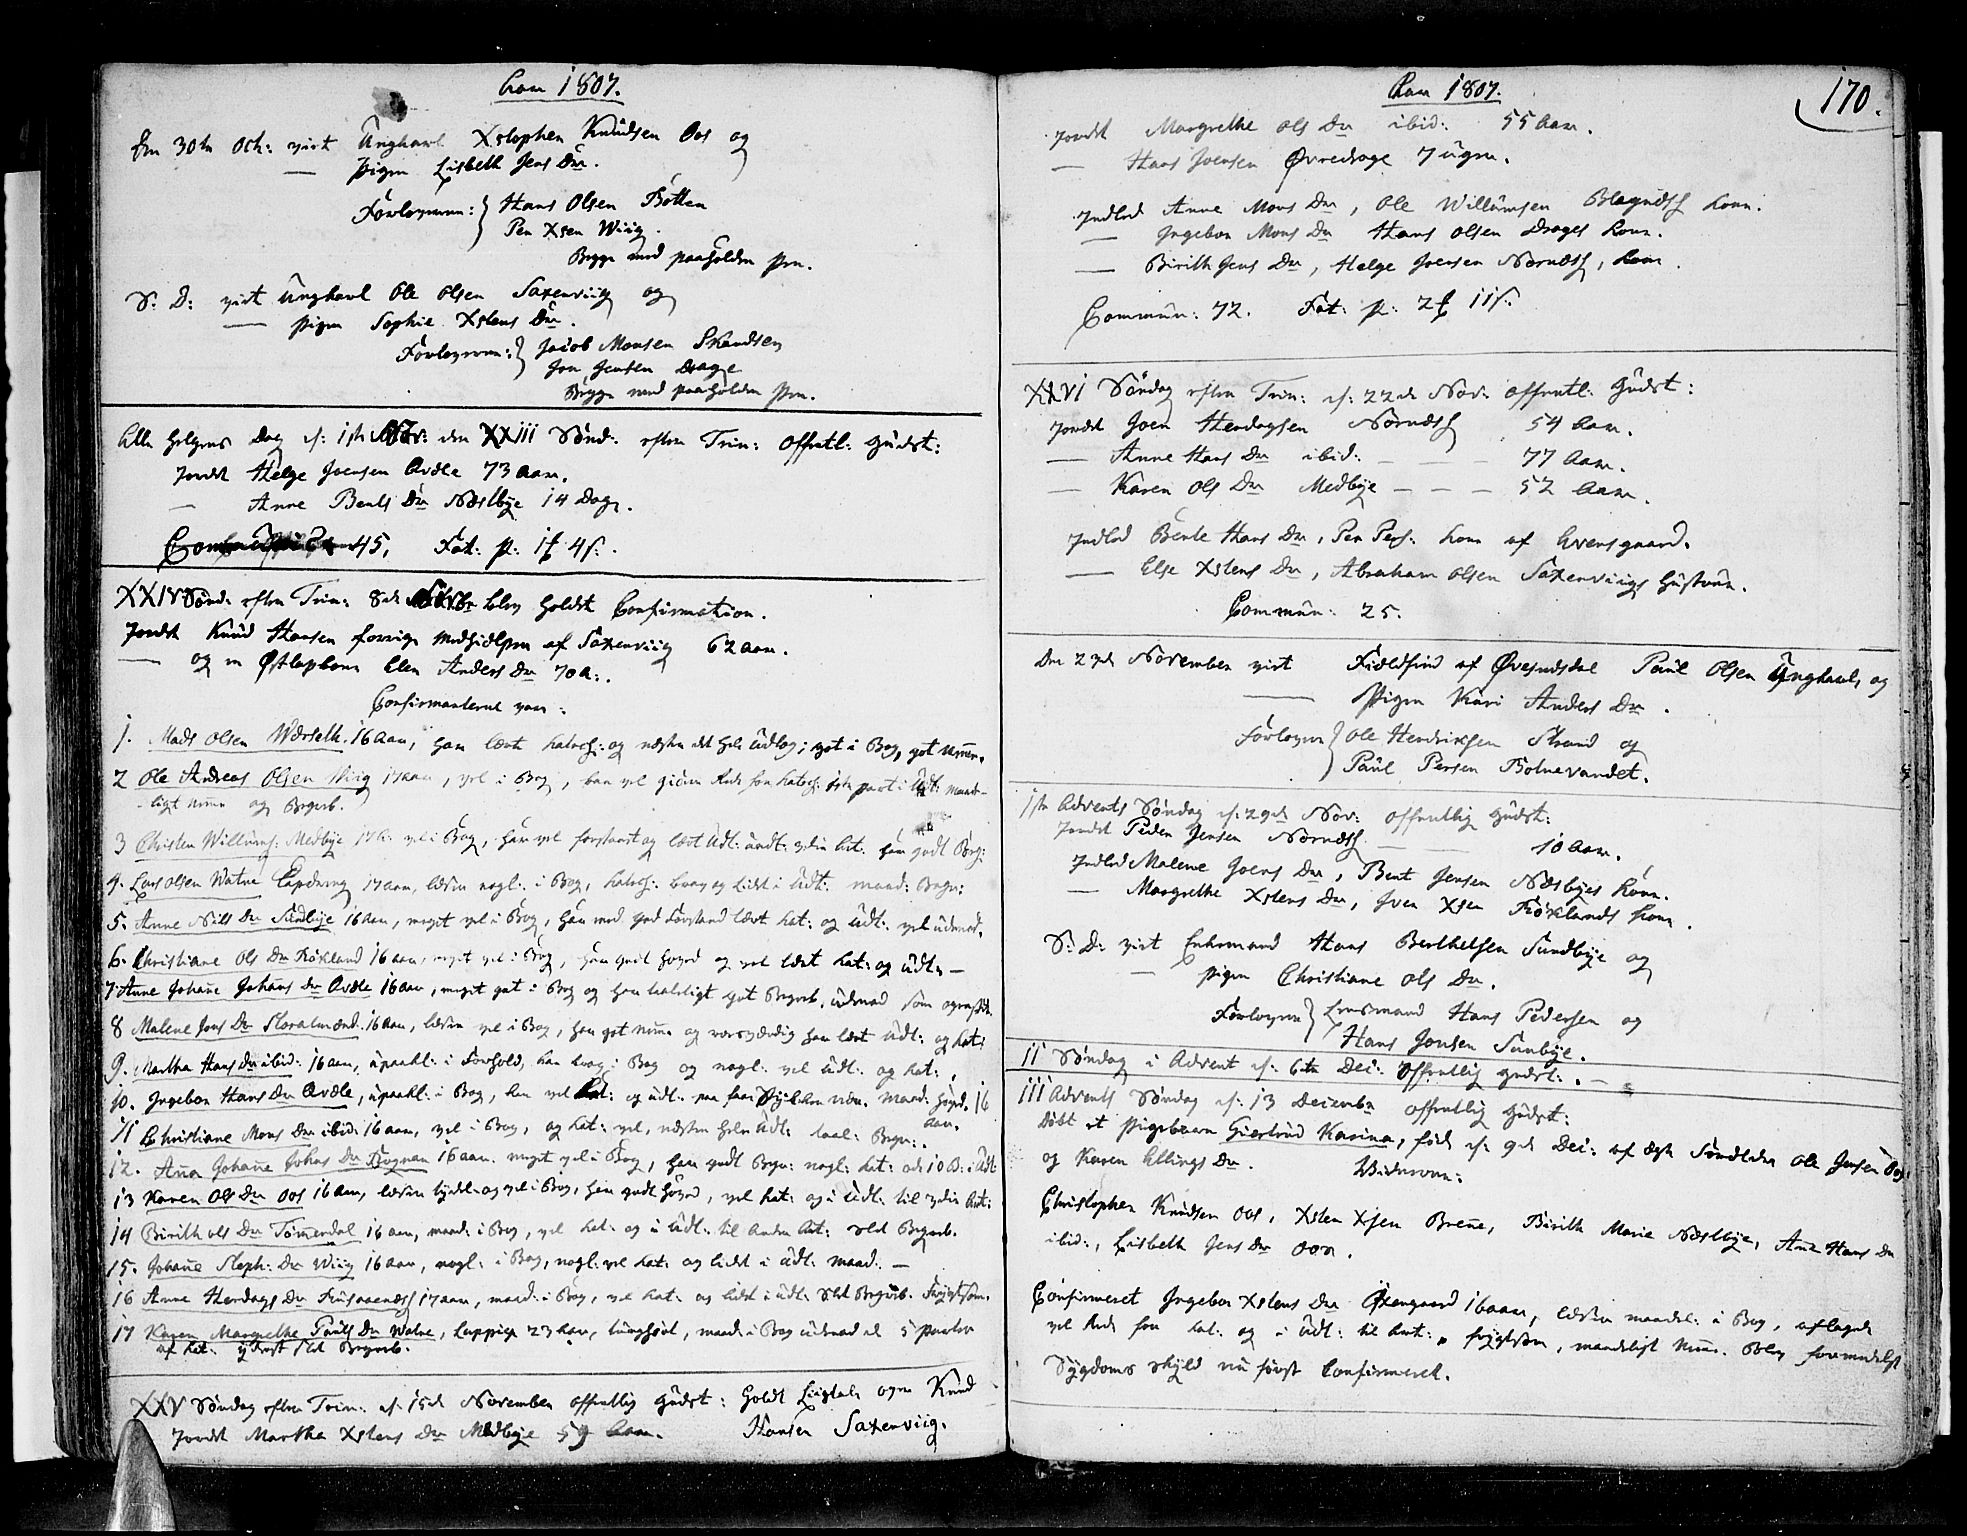 Aar 1807.
Den 30te Octb: viet Ungkarl Xstopher Knudsen Oos og
— Pigen Lisbeth Jens Dr.
Forlovere: } Hans Olsen Botten
Peer Xsen Wiig.
Begge med paaholden Pen.
S: D: viet Ungkarl Ole Olsen Saxenviig og
— Pigen Sophie Xstens Dr.
Forlovere: } Jacob Monsen Skandsen
Jon Jensen Drage
Begge med paaholden Pen.
Alle Helgens Dag d: 1ste Nov: den XXIII Sønd: efter Trin: Offentl: Gudst:
Jordet Helge Joensen Avdle 73 Aar.
— Anne Bents Dr Næstbye 14 Dage.
45, Tat: p: 1 4 s.
XXIV Sønd: efter Trin: 8de Novbr blev holdt Confirmation.
Jordet Knud Hansen forrige Medhielper af Saxenviig 62 Aar.
— og en Østlapkone Elen Anders Dr 70 A:.
Confirmanterne vare:
1. Mads Olsen Wærseth. 16 Aar, har lært Catech: og næsten det hele Udtog; got i Bog, got Nemme.
2 Ole Andreas Olsen Wiig 17 Aar, vel i Bog, kan vel giøre Rede for Catech: 1ste part i Udt: maade-
ligt Nemme og Begreb.
3 Christen Willums: Medbye 17 A: vel i Bog, har vel forstaaet og lært Udt: undt: 4die Art. har godt Begr:
4. Lars Olsen Watne 17 Aar, læser nogl: i Bog, Catech: brav og lidet i Udt: maad: Begr:
5. Anne Nils Dr Sundbye 16 Aar, meget vel i Bog, har med god Forstand lært Cat: og Udt: vel udenad.
6. Christiane Ols Dr Røkland 16 Aar, meget vel i Bog, har godt Begreb og vel lært Cat: og Udt: —
7 Anne Johanne Johans Dr Avdle 16 Aar, meget got i Bog og har got Begreb, udenad som
8 Malene Jons Dr Storalmend. 16 Aar, læser vel i Bog, har got Nemme og har lært Udt: og Cat:
9. Martha Hans Dr ibid: 16 Aar, upaakl: i Forhold, har brav i Bog og nogl: vel Udt: og Cat:.
10. Ingebor Hans Dr Avdle, upaakl: i Bog, kan vel Cat: og Udt: maad: 16
Aar.
11 Christiane Mons Dr ibid: 16 Aar, vel i Bog, og Cat: vel, næsten hele Udt: Begr:.
12. Ana Johane Johns Dr 16 Aar. meget vel i Bog, har godt Begr: nogl: Cat: i Udt
13 Karen Ols Dr Oos 16 Aar, læser og vel i Bog, har godt vel Cat: og i Udt: til 4die Art:
14 Birith Ols Dr Tømerdal 16 Aar, maad: i Bog, vel Cat: og i Udt: til Anden Art: slet Begreb.
15. Johane Steph: Dr Wiig 16 Aar, nogl: i Bog, nogl: vel Cat: og lidet i Udt: maad: —
16 Anne Herdags Dr 17 Aar, maad: i Bog, vel Cat: og lidet i Udt: slet Begreb.
17 Karen Margrethe Pauls Dr Watne, Lappige 23 Aar, maad: i Bog udenad de 5 Parter
af Cat: yderst slet Begreb.
XXV Søndag efter Trin: d: 15de November offentlig Gudst: Holdt Liigtale over Knud
Jordet Martha Xstens Dr Medbye 59 Aar. Hansen Saxenviig.
Aar 1807. 170.
Jordet Margrethe Ols Dr ibid: 55 Aar.
— Hans Joensen Øvredrage 7 Uger.
Indled Anne Mons Dr, Ole Willumsen Kone.
— Ingebor Mons Dr Hans Olsen Drages Kone.
— Birith Jens Dr, Helge Joensen Kone.
Commun: 72. Tat: p: 2 11 s.
XXVI Søndag efter Trin: d: 22de Nov: offentl: Gudst:
Jordet Joen Herdagsen 54 Aar.
— Anne Hans Dr ibid: — — — 77 Aar.
— Karen Ols Dr Medbye — — — 52 Aar.
Indled Bente Hans Dr, Peer Pers: Kone af Evensgaard.
— Else Xstens Dr, Abraham Olsen Saxenviigs Hustrue.
Commun: 25.
Den 23de November viet Fieldfind af Øvesundsdal Paul Olsen Ungkarl, og
— Pigen Kari Anders Dr.
Forlovere } Ole Hendriksen Strand og
Paul Persen Botnevandet.
1ste Advents Søndag d: 29de Nov: offentlig Gudst:
Jordet Peder Jensen — — 10 Aar.
Indled Malene Joens Dr, Bent Jensen Næsbyes Kone.
— Margrethe Xstens Dr, Iver Xsen Røklands Kone.
S: D: viet Enkemand Hans Berthelsen Sundbye og
— Pigen Christiane Ols Dr.
Forlovere } Lensmand Hans Pedersen og
Hans Jonsen Sunbye.
II Søndag i Advent d: 6te Dec: Offentlig Gudst:. —
III Advents Søndag d: 13 December offentlig Gudst:
Døbt et Pigebarn Giertrud Karina, fød d: 9de Dec: af Ægte Ole Jensen Oos
og Karen Ellings Dr. Widnerne:
Christopher Knudsen Oos, Xsten Xsen Brene, Birith Marie Næstbye, Ane Hans Dr
ibid:, Lisbeth Jens Dr Oos.
Confirmeret Ingebor Xstens Dr Øxengaard 16 Aar, læser maadel: i Bog, aflagde
vel Rede for Cat: og i Udt: til Art: maadeligt Nemme. Blev formedelst
Sygdoms skyld nu først Confirmeret.